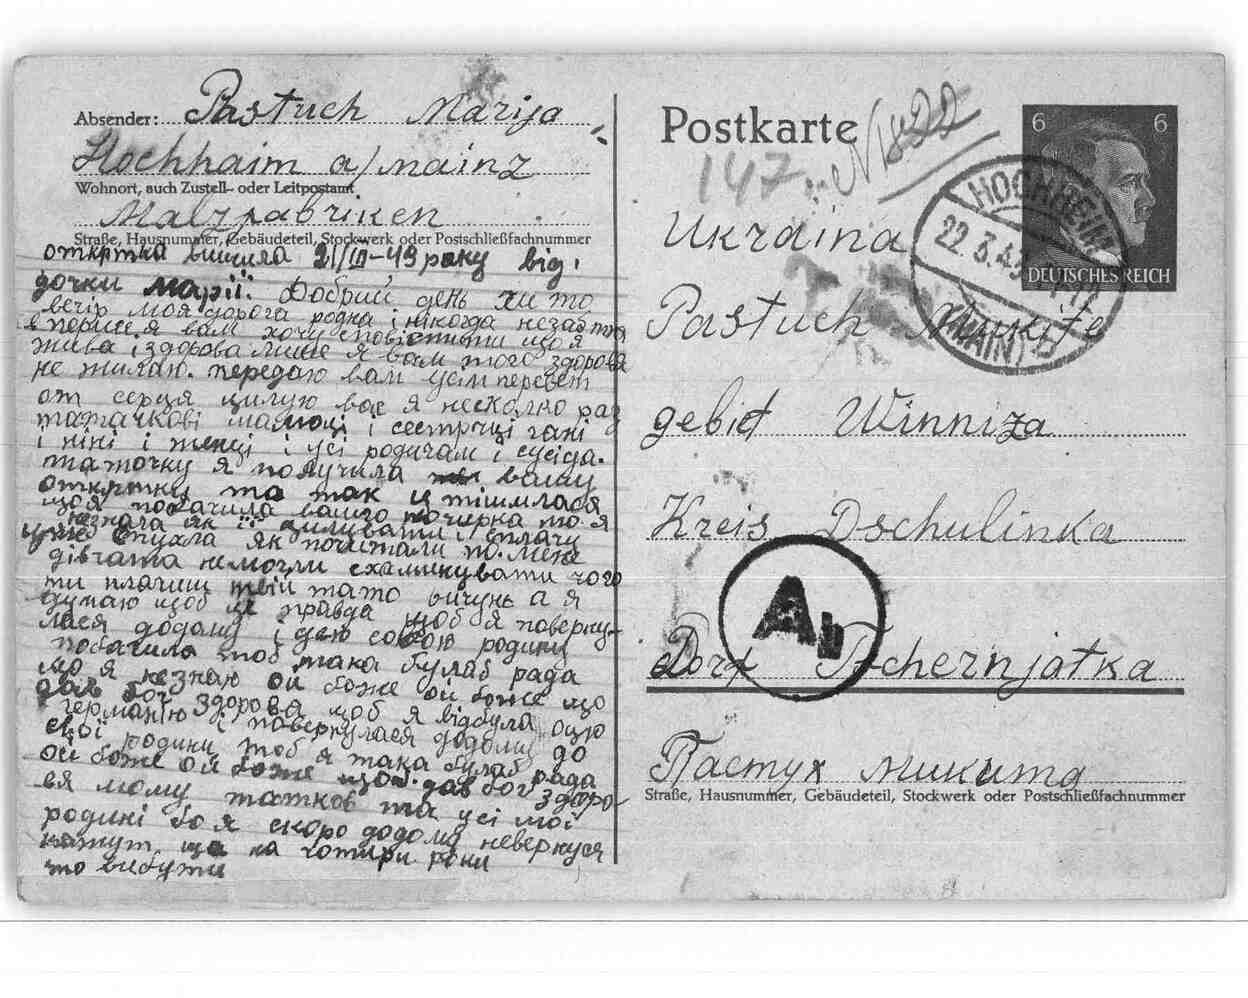 Absender: Pastuch Marija
Hochhaim a/mainz
Wohnort, auch Zustell- oder Leitpostamt
Malzfabriken
Straße, Hausnummer, Gebäudeteil, Stockwerk oder Postschließfachnummer
открткa вишила 21/III-43 року від
дочки марії. Добрий день чи то
вечір моя дорога родна і нікогда незабтня
вперше я вам хочу сповістити що я
жива і здорова лише я вам того здоровя
не жилаю. передаю вам усім перевет
от серця цилую вас я несколко раз
татачкові мамоці і сестрчці гані
і ніні і женці і усі родичам і сусіда.
таточку я получила вашу
откртку та так утішилася
що я побачила вашого почирка то я
незнала як її цилувати і плачу
уже спухла як почитали то мене
дівчата немогли схаминувати чого
ти плачиш твій тато вичунь а я
думаю щоб це правда щоб я поверну-
лася додому і цею собою родину
побачила тоб така булаб рада
що я незнаю ой боже ой боже що
дав бог здоровя щоб я відбула оцю
германію і повернулася додому до
свої родини тоб я така булаб рада
ой боже ой боже щоб дав бог здоро-
вя мому таткові та усі мої
родині бо я скоро додому невернуся
кажут що на чотири роки
то вибути
Postkarte
N1822
147
6 6
DEUTSCHES REICH
HOCHHEIM
22.3.43
(MAIN) b
Ukraina
Pastuch Mukite
gebit Winniza
Kreis Dschulinka
Ab
Dorf Tschernjatka
Пастух Микита
Straße, Hausnummer, Gebäudeteil, Stockwerk oder Postschließfachnummer